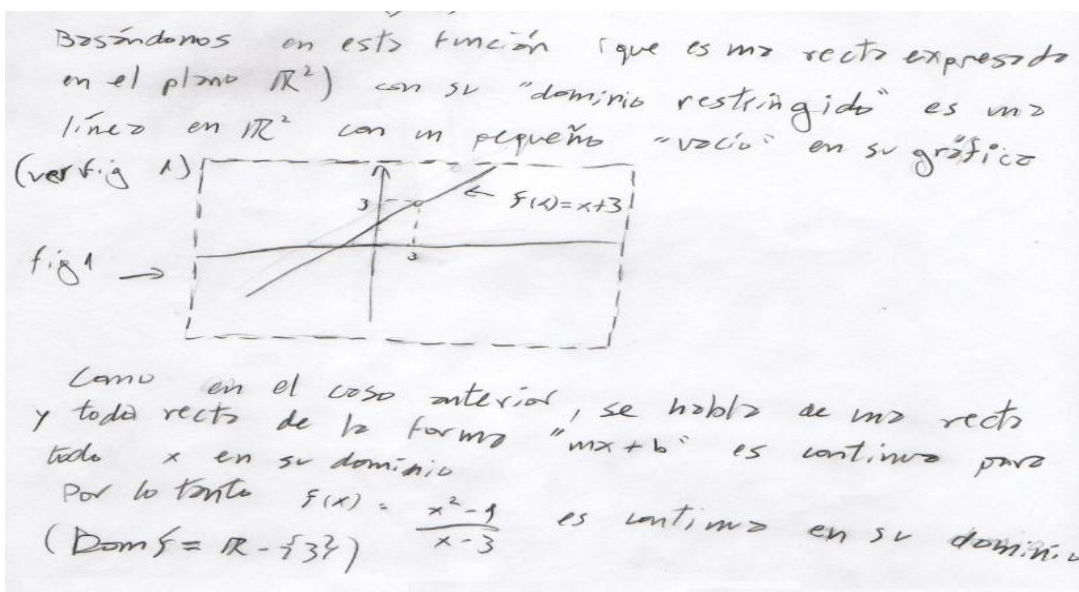 Basándonos en esta función (que es una recta expresada
en el plano ℝ²) con su "dominio restringido" es una
línea en ℝ² con un pequeño "vacío" en su gráfica
(ver fig 1)
3
← f(x)=x+3
fig 1 →
3
Como en el caso anterior, se habla de una recta
y toda recta de la forma "mx+b" es continua para
todo x en su dominio
Por lo tanto f(x) = \frac{x²-9}{x-3} es continua en su dominio
(Dom f = ℝ - {3})